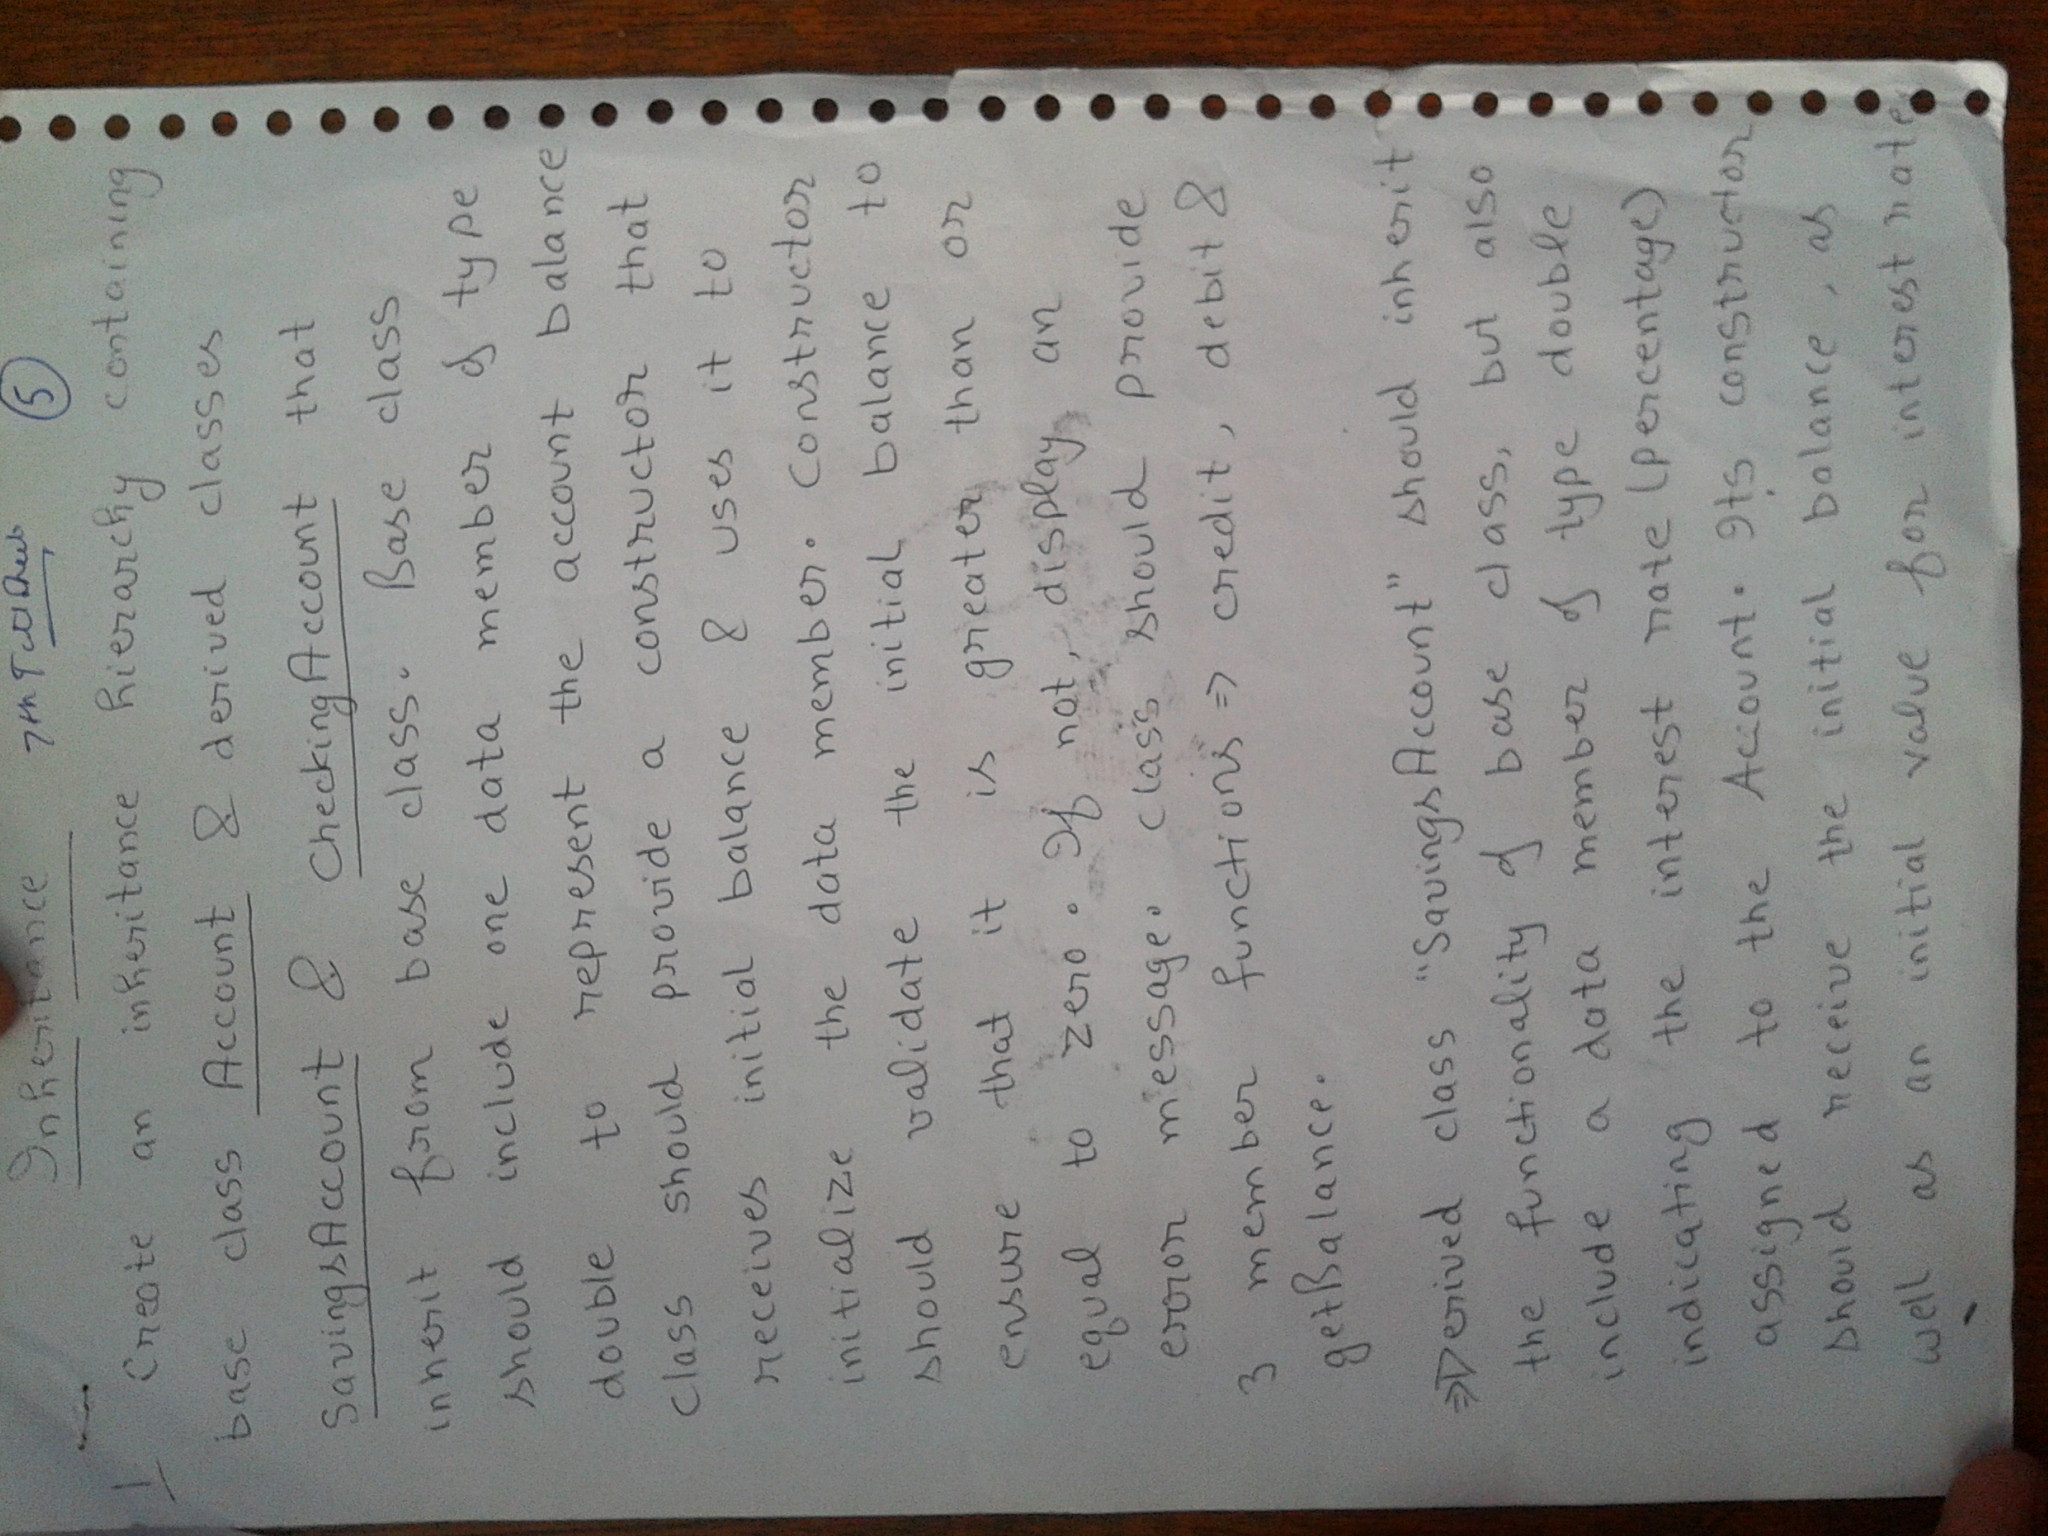 Inheritance 7th Tutsheet 5
1 Create an inheritance hierarchy containing
base class Account & derived classes
SavingsAccount & CheckingAccount that
inherit from base class. Base class
should include one data member of type
double to represent the account balance
class should provide a constructor that
receives initial balance & uses it to
initialize the data member. Constructor
should validate the initial balance to
ensure that it is greater than or
equal to zero. If not, display an
error message. Class should provide
3 member functions ⇒ credit, debit &
getBalance.
⇒ Derived class "SavingsAccount" should inherit
the functionality of base class, but also
include a data member of type double
indicating the interest rate (percentage)
assigned to the Account. Its constructor
should receive the initial balance, as
well as an initial value for interest rate